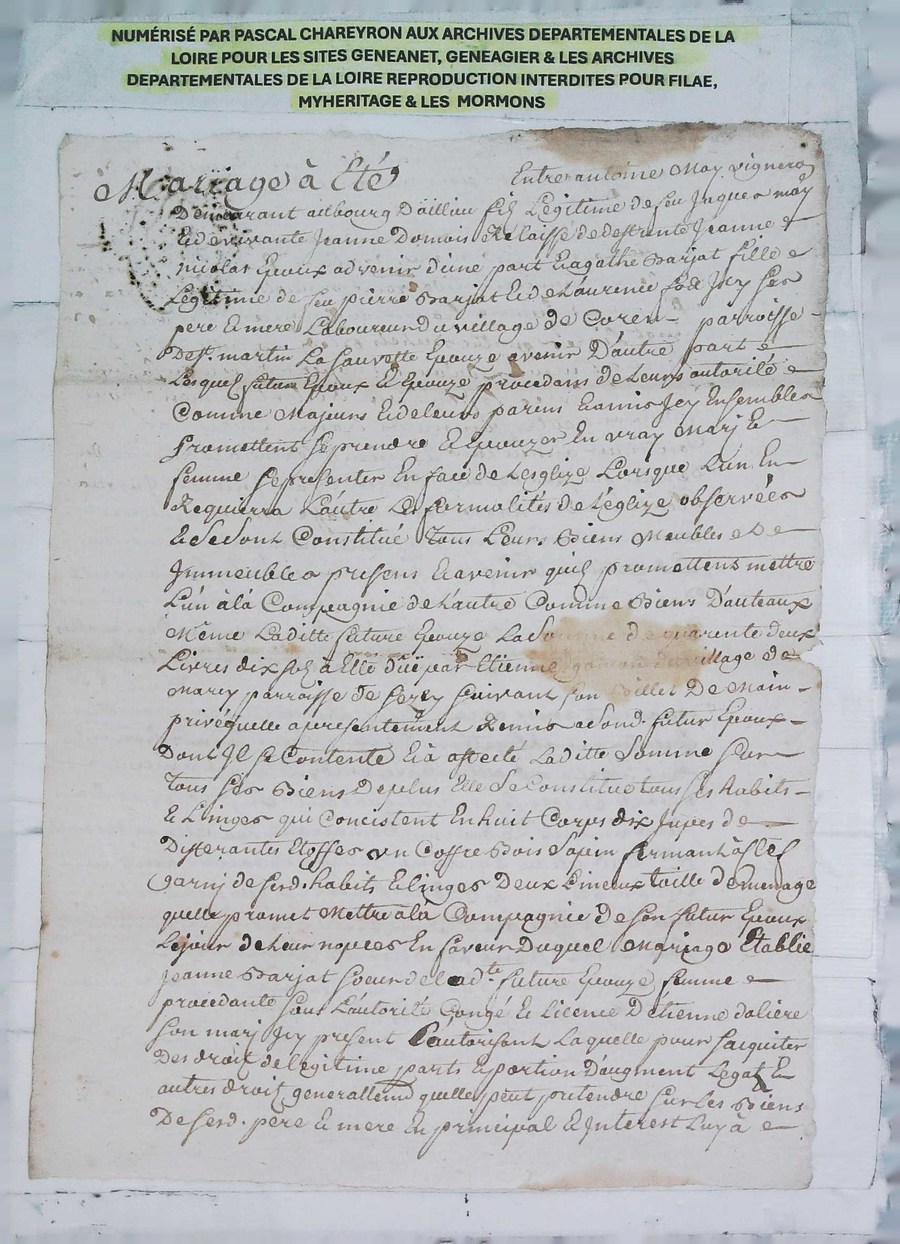 NUMÉRISÉ PAR PASCAL CHAREYRON AUX ARCHIVES DEPARTEMENTALES DE LA
LOIRE POUR LES SITES GENEANET, GENEAGIER & LES ARCHIVES
DEPARTEMENTALES DE LA LOIRE REPRODUCTION INTERDITES POUR FILAE,
MYHERITAGE & LES MORMONS
Mariage à Eté Entre antoine May vigneron
Demeurant au bourg Daillieu fils Legitime de feu Jaques may
Et de vivante Jeanne Domois Relaissé de deffunte Jeanne
nicolas Epoux advenir d'une part Et agathe Barjat fille
Legitime de feu pierre Barjat Et de Laurence ses
pere Et mere Laboureur du village de Coren parroisse
De st. martin La Sauvette Epouze avenir D'autre part
Lesquels futur Epoux Et Epouze procedans de Leurs autorité
Comme Majeurs Et de leurs parens Et amis Icy Ensembles
Promettent se prendre Et Epouzer En vray Mary Et
femme Se presenter En face de Lesglize Lorsque L'un En
Requierra L'autre Les formalités de L'églize observées
Et Se Sont Constitué Tous Leurs Biens Meubles Et
Immeubles presens Et avenir quils promettens mettre
L'un à la Compagnie de L'autre Comme Biens Dauteaux
Même Laditte future Epouze La Somme de quarente deux
Livres dix sols à Elle düe par Etienne du village de
Marcy parroisse de Suivant son Billet De Main
privé quelle a presentement Remis a sond. futur Epoux
Dont Il se Contente Et à affecté Laditte Somme Sur
Tous Ses Biens De plus Elle Se Constitue tous ses habits
Et Linges qui Concistent En huit Corps dix Jupes de
Differantes Etoffes un Coffre Bois Sapin fermant à Clef
Garny de Sesd. habits Et linges Deux Linceux toille de menage
quelle promet Mettre à la Compagnie de Son futur Epoux
Le jour de Leur nopces En faveur Duquel Mariage Etablie
Jeanne Barjat Soeur de Lad.te future Epouze femme
procedante Sous L'autorité Congé Et Licence D'étienne dalière
Son mary Icy present L'autorisant Laquelle pour Sacquiter
Des droit de legitime parts Et portion D'augment Legat Et
autres droit quelle peut pretendre Sur Les Biens
De Sesd. pere Et mere En principal Et Interest Luy à